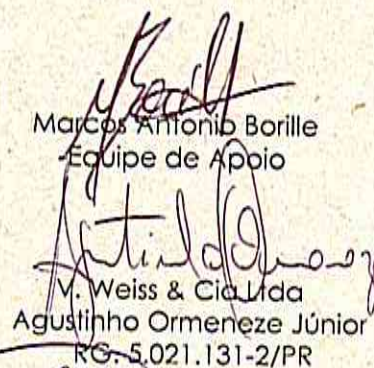 Marcos Antonio Borille
Equipe de Apoio
V. Weiss & Cia Ltda
Agustinho Ormeneze Júnior
RG. 5.021.131-2/PR